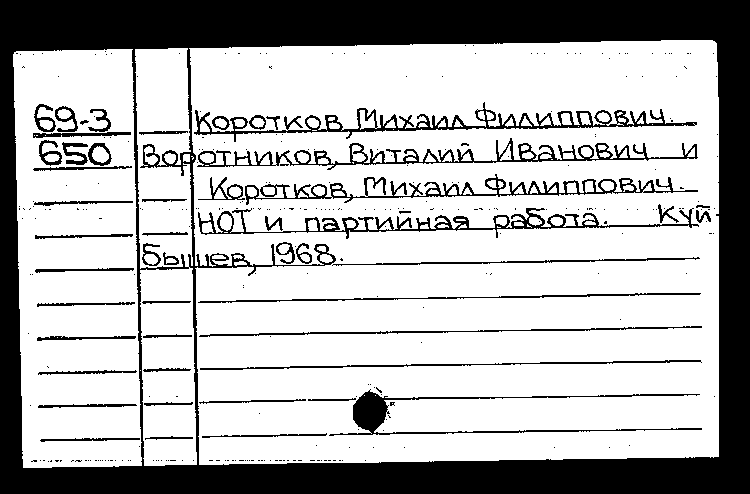 69-3 Коротков, Михаил Филиппович.
650 Воротников, Виталий Иванович и
Коротков, Михаил Филиппович.
НОТ и партийная работа. Куй-
бышев, 1968.